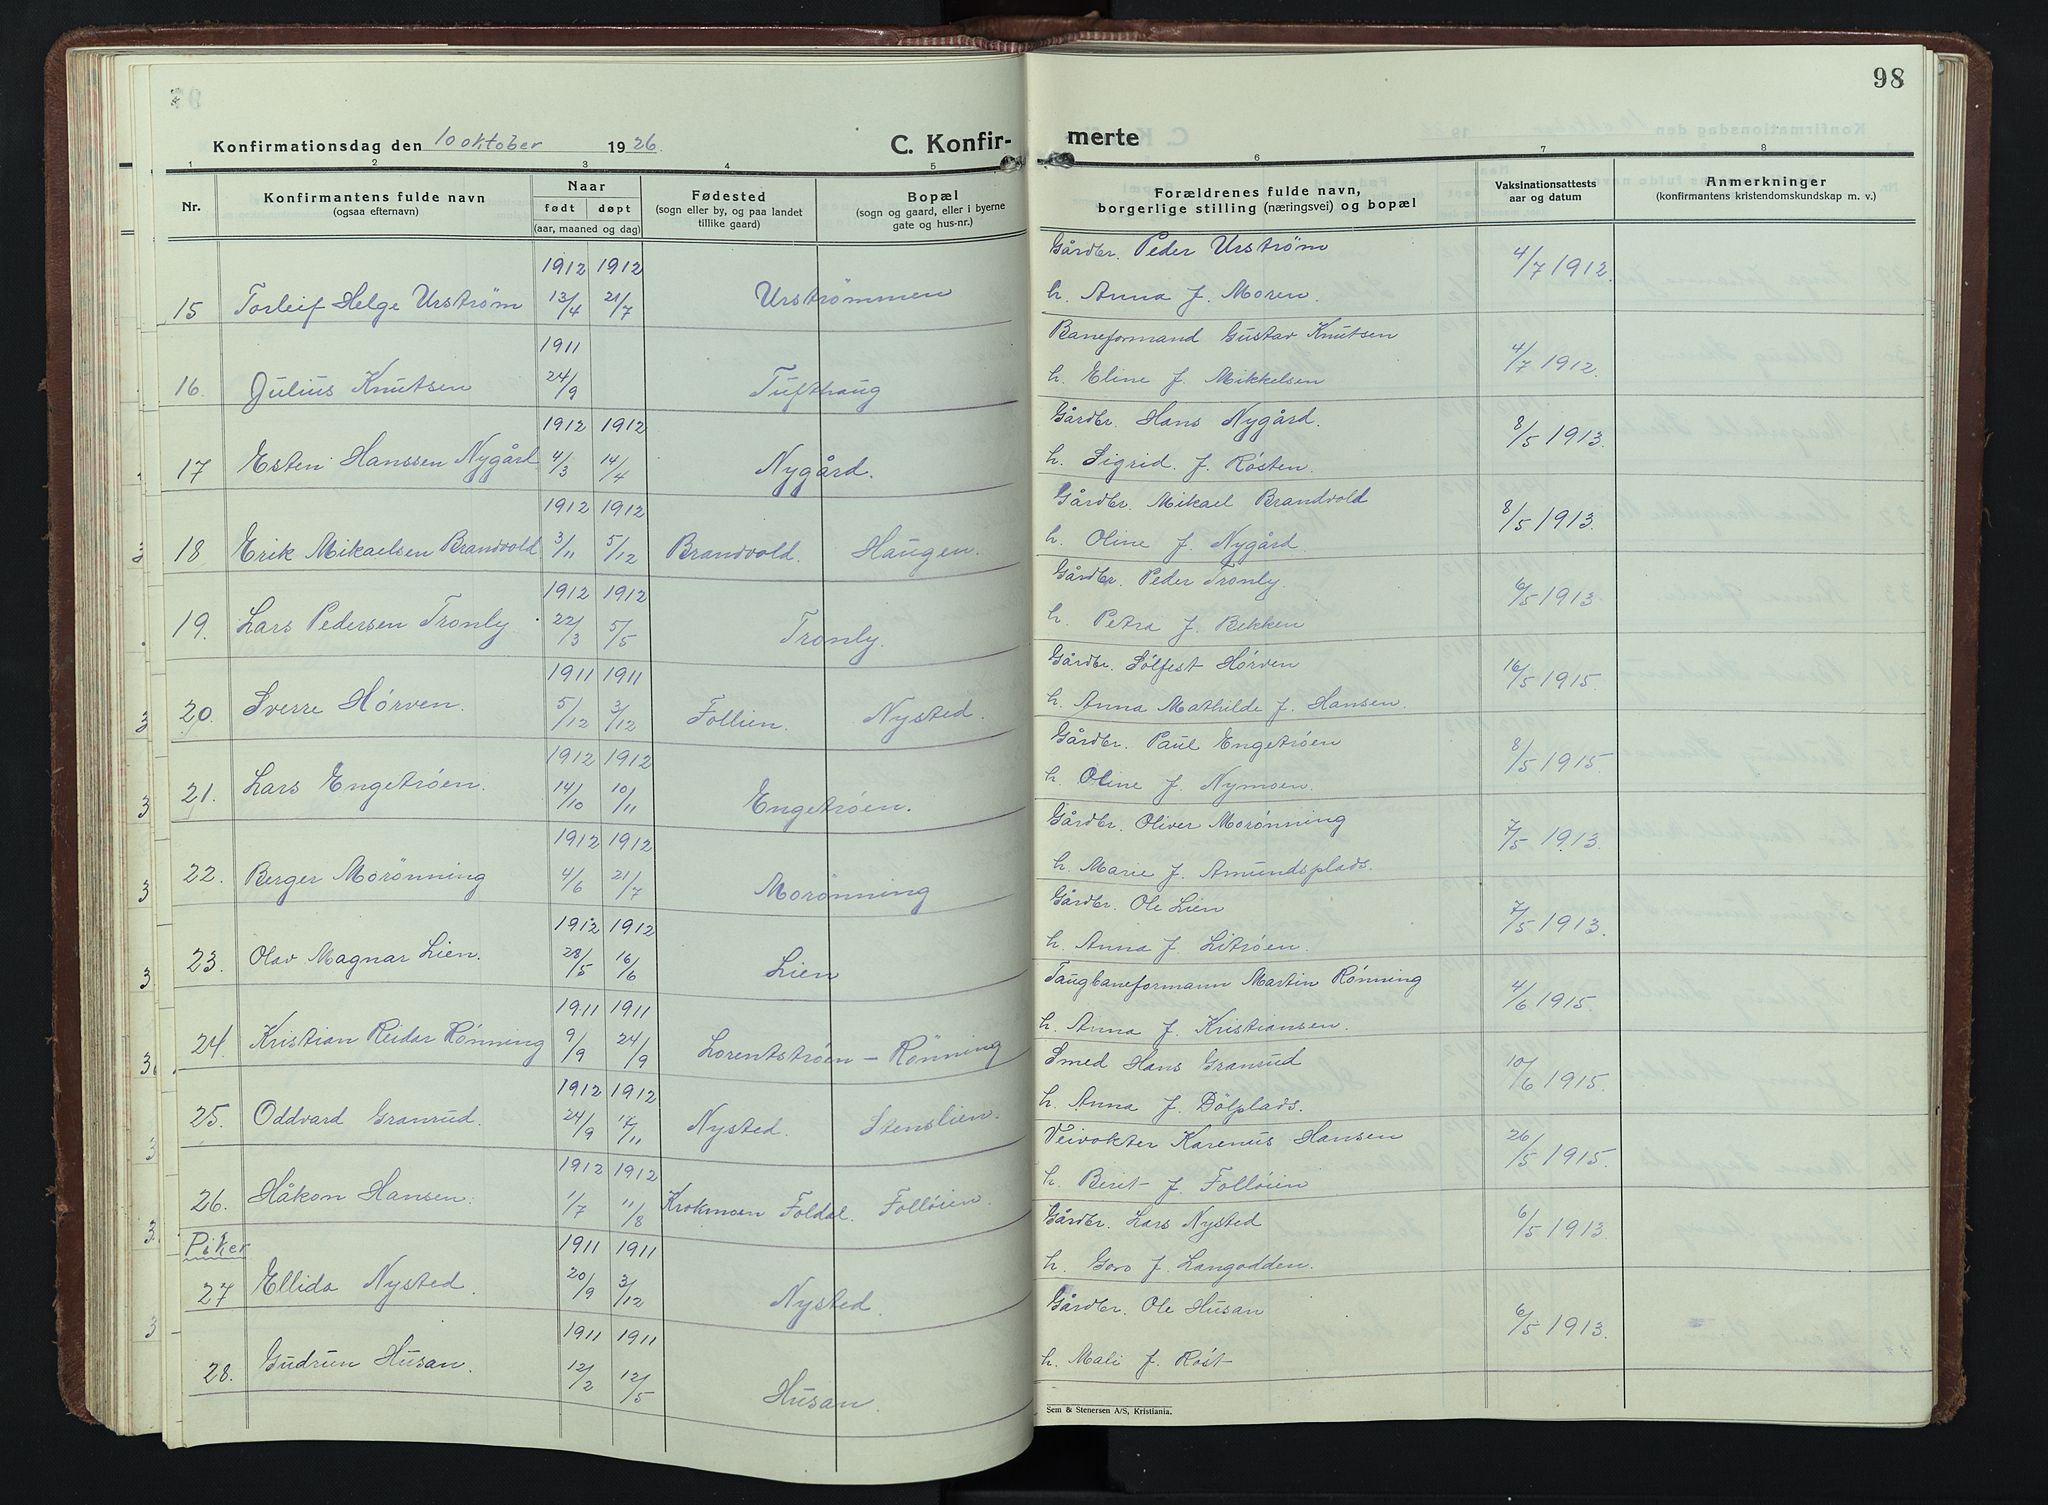 98
Konfirmationsdag den 10 oktober 1926.
C. Konfir- merte
1 2 3 4 5 6 7 8
Nr.
Konfirmantens fulde navn
(ogsaa efternavn)
Naar
født døpt
(aar, maaned og dag)
Fødested
(sogn eller by, og paa landet
tillike gaard)
Bopæl
(sogn og gaard, eller i byerne
gate og hus-nr.)
Forældrenes fulde navn,
borgerlige stilling (næringsvei) og bopæl
Vaksinationsattests
aar og datum
Anmerkninger
(konfirmantens kristendomskundskap m. v.)
1912 1912 Gårdbr. Peder Urstrøm
15 Torleif Helge Urstrøm 13/4 21/7 Urstrømmen h. Anna f. Moren. 4/7 1912.
1911 Baneformand Gustav Knutsen
16. Julius Knutsen 24/9 Tufthaug h. Eline f. Mikkelsen 4/7 1912.
1912 1912 Gårdbr. Hans Nygård.
17 Esten Hanssen Nygård 4/3 14/4 Nygård. h. Sigrid f. Røsten. 8/5 1913.
1912 1912 Gårdbr. Mikael Brandvold
18 Erik Mikaelsen Brandvold 3/11 5/12 Brandvold. Haugen. h. Oline f. Nygård 8/5 1913.
1912 1912 Gårdbr. Peder Tronly.
19. Lars Pedersen Tronly 22/3 5/5 Tronly. h. Petra f. Bekken 6/5 1913.
1911 1911 Gårdbr. Sølfest Hørven
20. Sverre Hørven. 5/12 3/12 Follien. Nysted. h. Anna Mathilde f. Hansen. 16/5 1915.
1912 1912 Gårdbr. Paul Engetrøen
21. Lars Engetrøen. 14/10 10/11 Engetrøen. h. Oline f. Nymoen. 8/5 1915.
1912 1912 Gårdbr. Oliver Morønning
22. Berger Morønning 4/6 21/7 Morønning h. Marie f. Amundsplads. 7/5 1913.
1912 1912 Gårdbr. Ole Lien
23. Olav Magnar Lien. 28/5 16/6 Lien h. Anna f. Litrøen. 7/5 1913.
1911 1911 Taugbaneformann Martin Rønning
24. Kristian Reidar Rønning 9/9 24/9 Lorentstrøen - Rønning h. Anna f. Kristiansen. 4/6 1915.
1912 1912 Smed Hans Granrud
25. Oddvard Granrud. 24/9 17/11 Nysted. Stenslien. h. Anna f. Dølplads. 10/6 1915.
1912 1912 Veivokter Karenus Hansen
26. Håkon Hansen. 1/7 11/8 Krokmoen Foldal. Folløien. h. Berit f. Folløien 26/5 1915.
Piker 1911 1911 Gårdbr. Lars Nysted
27 Ellida Nysted. 20/9 3/12 Nysted. h. Goro f. Langodden. 6/5 1913.
1911 1911 Gårdbr. Ole Husan
28. Gudrun Husan. 12/2 12/5 Husan. h. Mali f. Røst 6/5 1913.
Sem & Stenersen A/S, Kristiania.